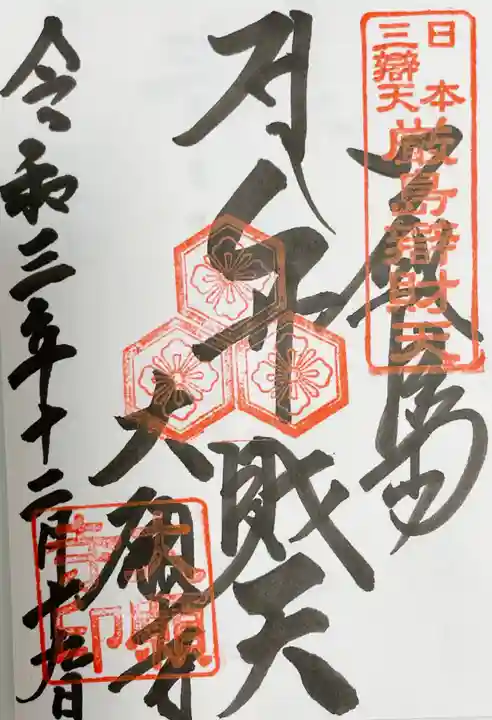 日本
三辯天
厳島辯財天
島
財天
大願寺
大願
寺印
令和三年十二月
日